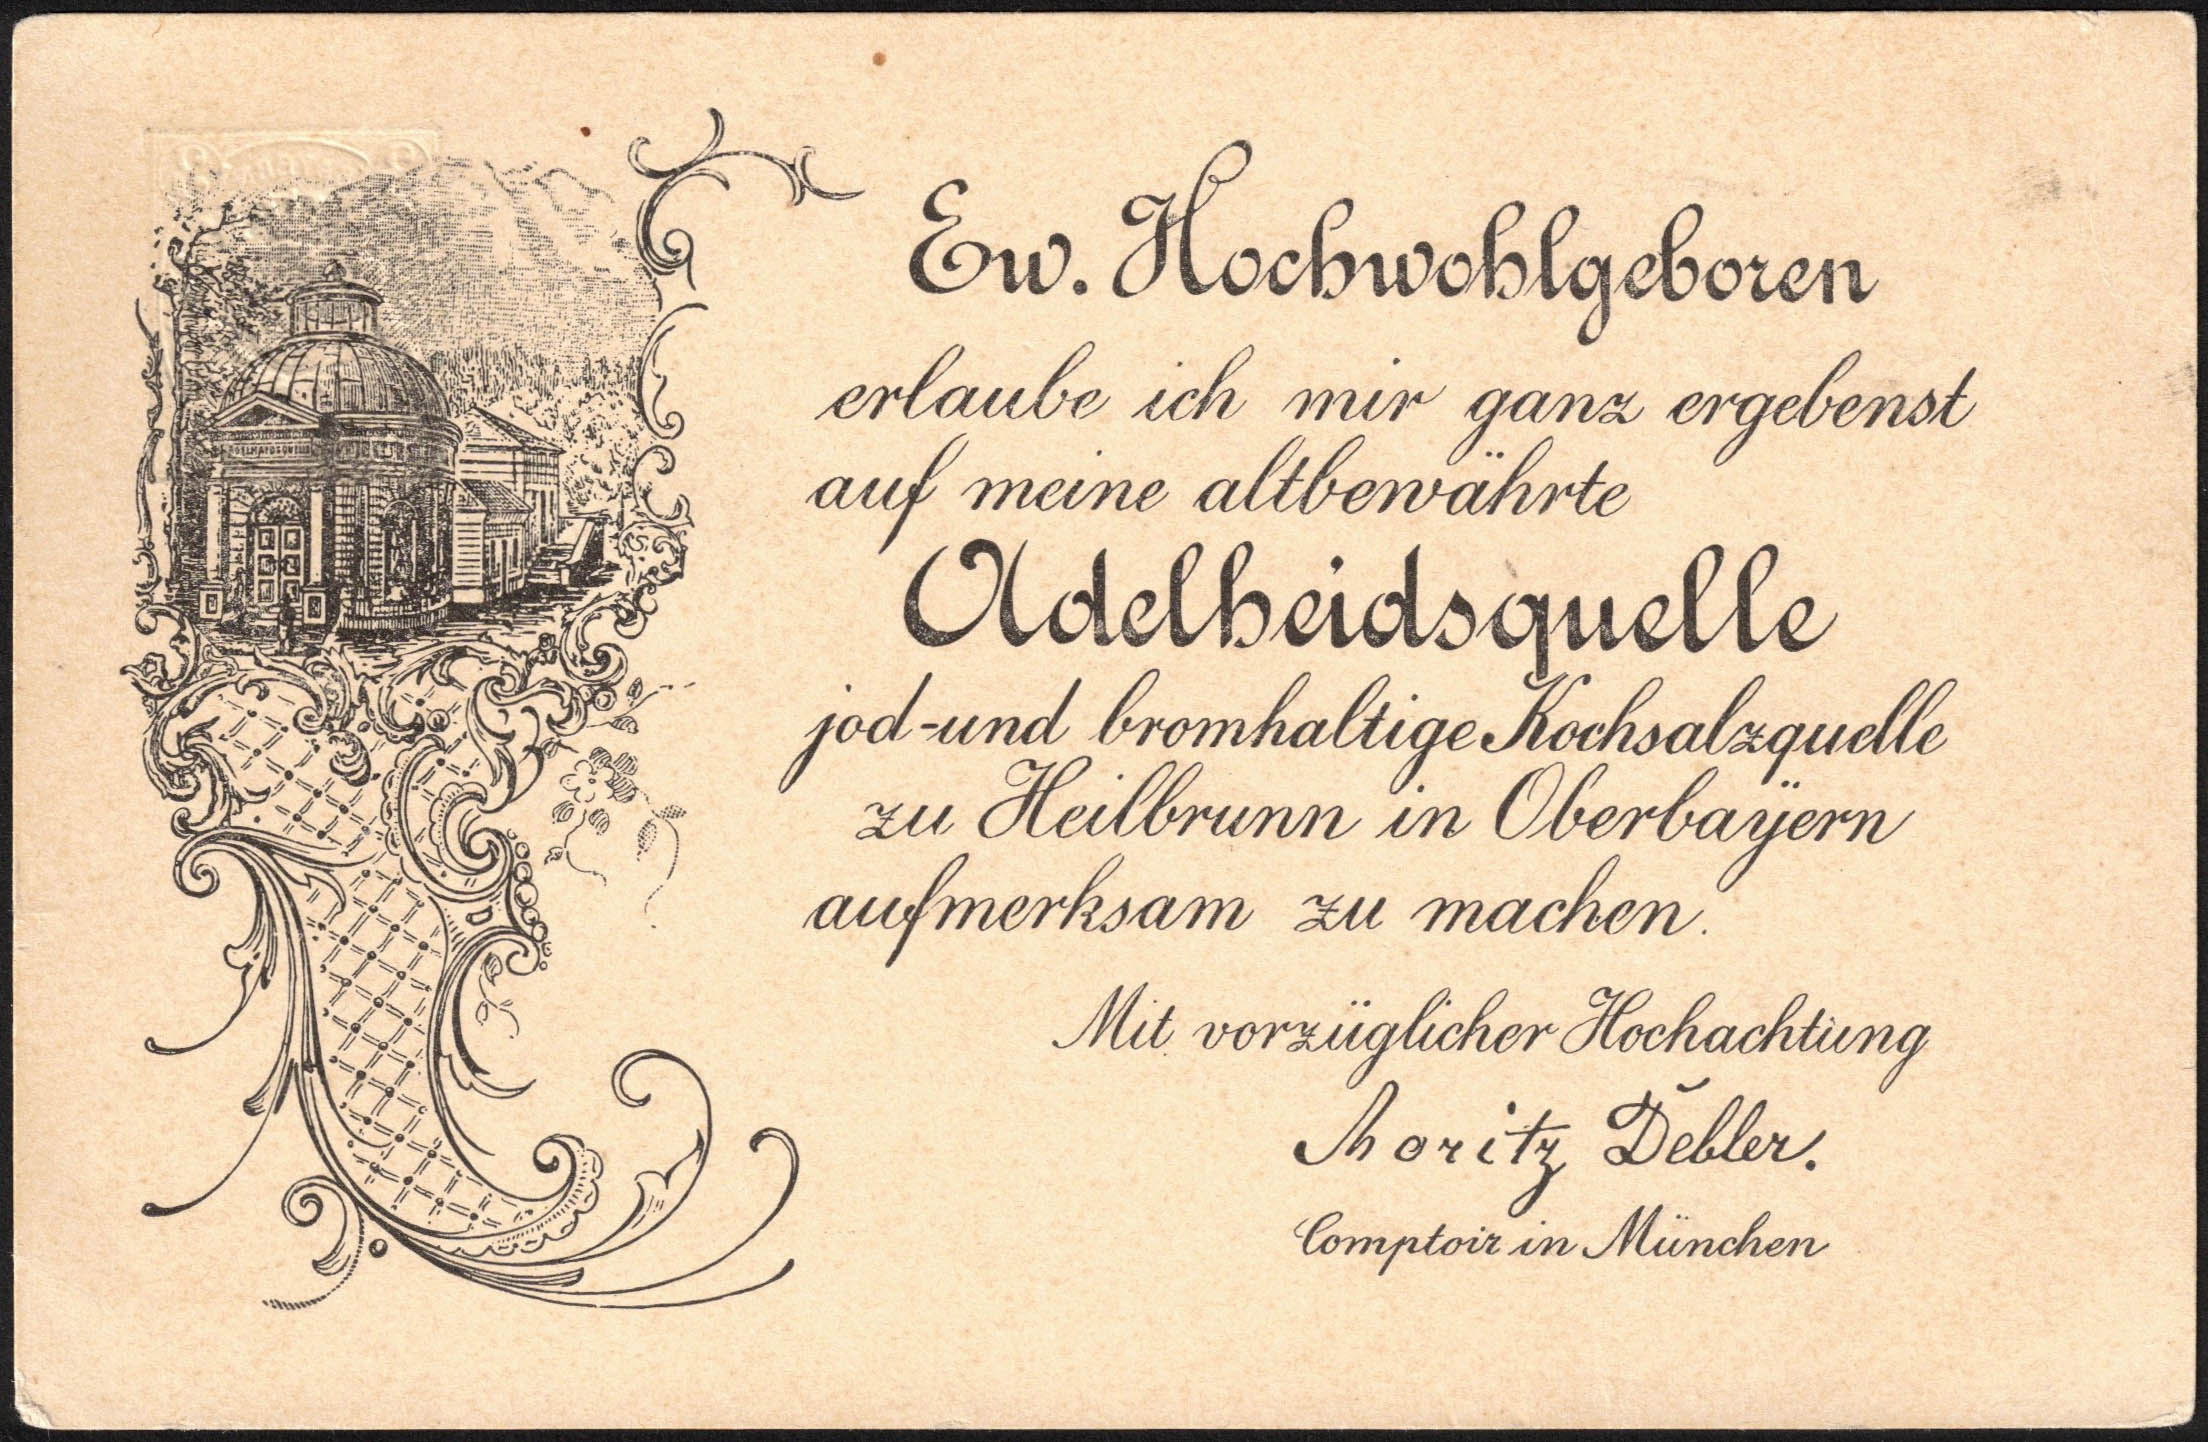 Ew. Hochwohlgeboren
erlaube ich mir ganz ergebenst
auf meine altbewährte
Adelheidsquelle
jod-und bromhaltige Kochsalzquelle
zu Heilbrunn in Oberbaÿern
aufmerksam zu machen.
Mit vorzüglicher Hochachtung
Moritz Debler.
Comptoir in München